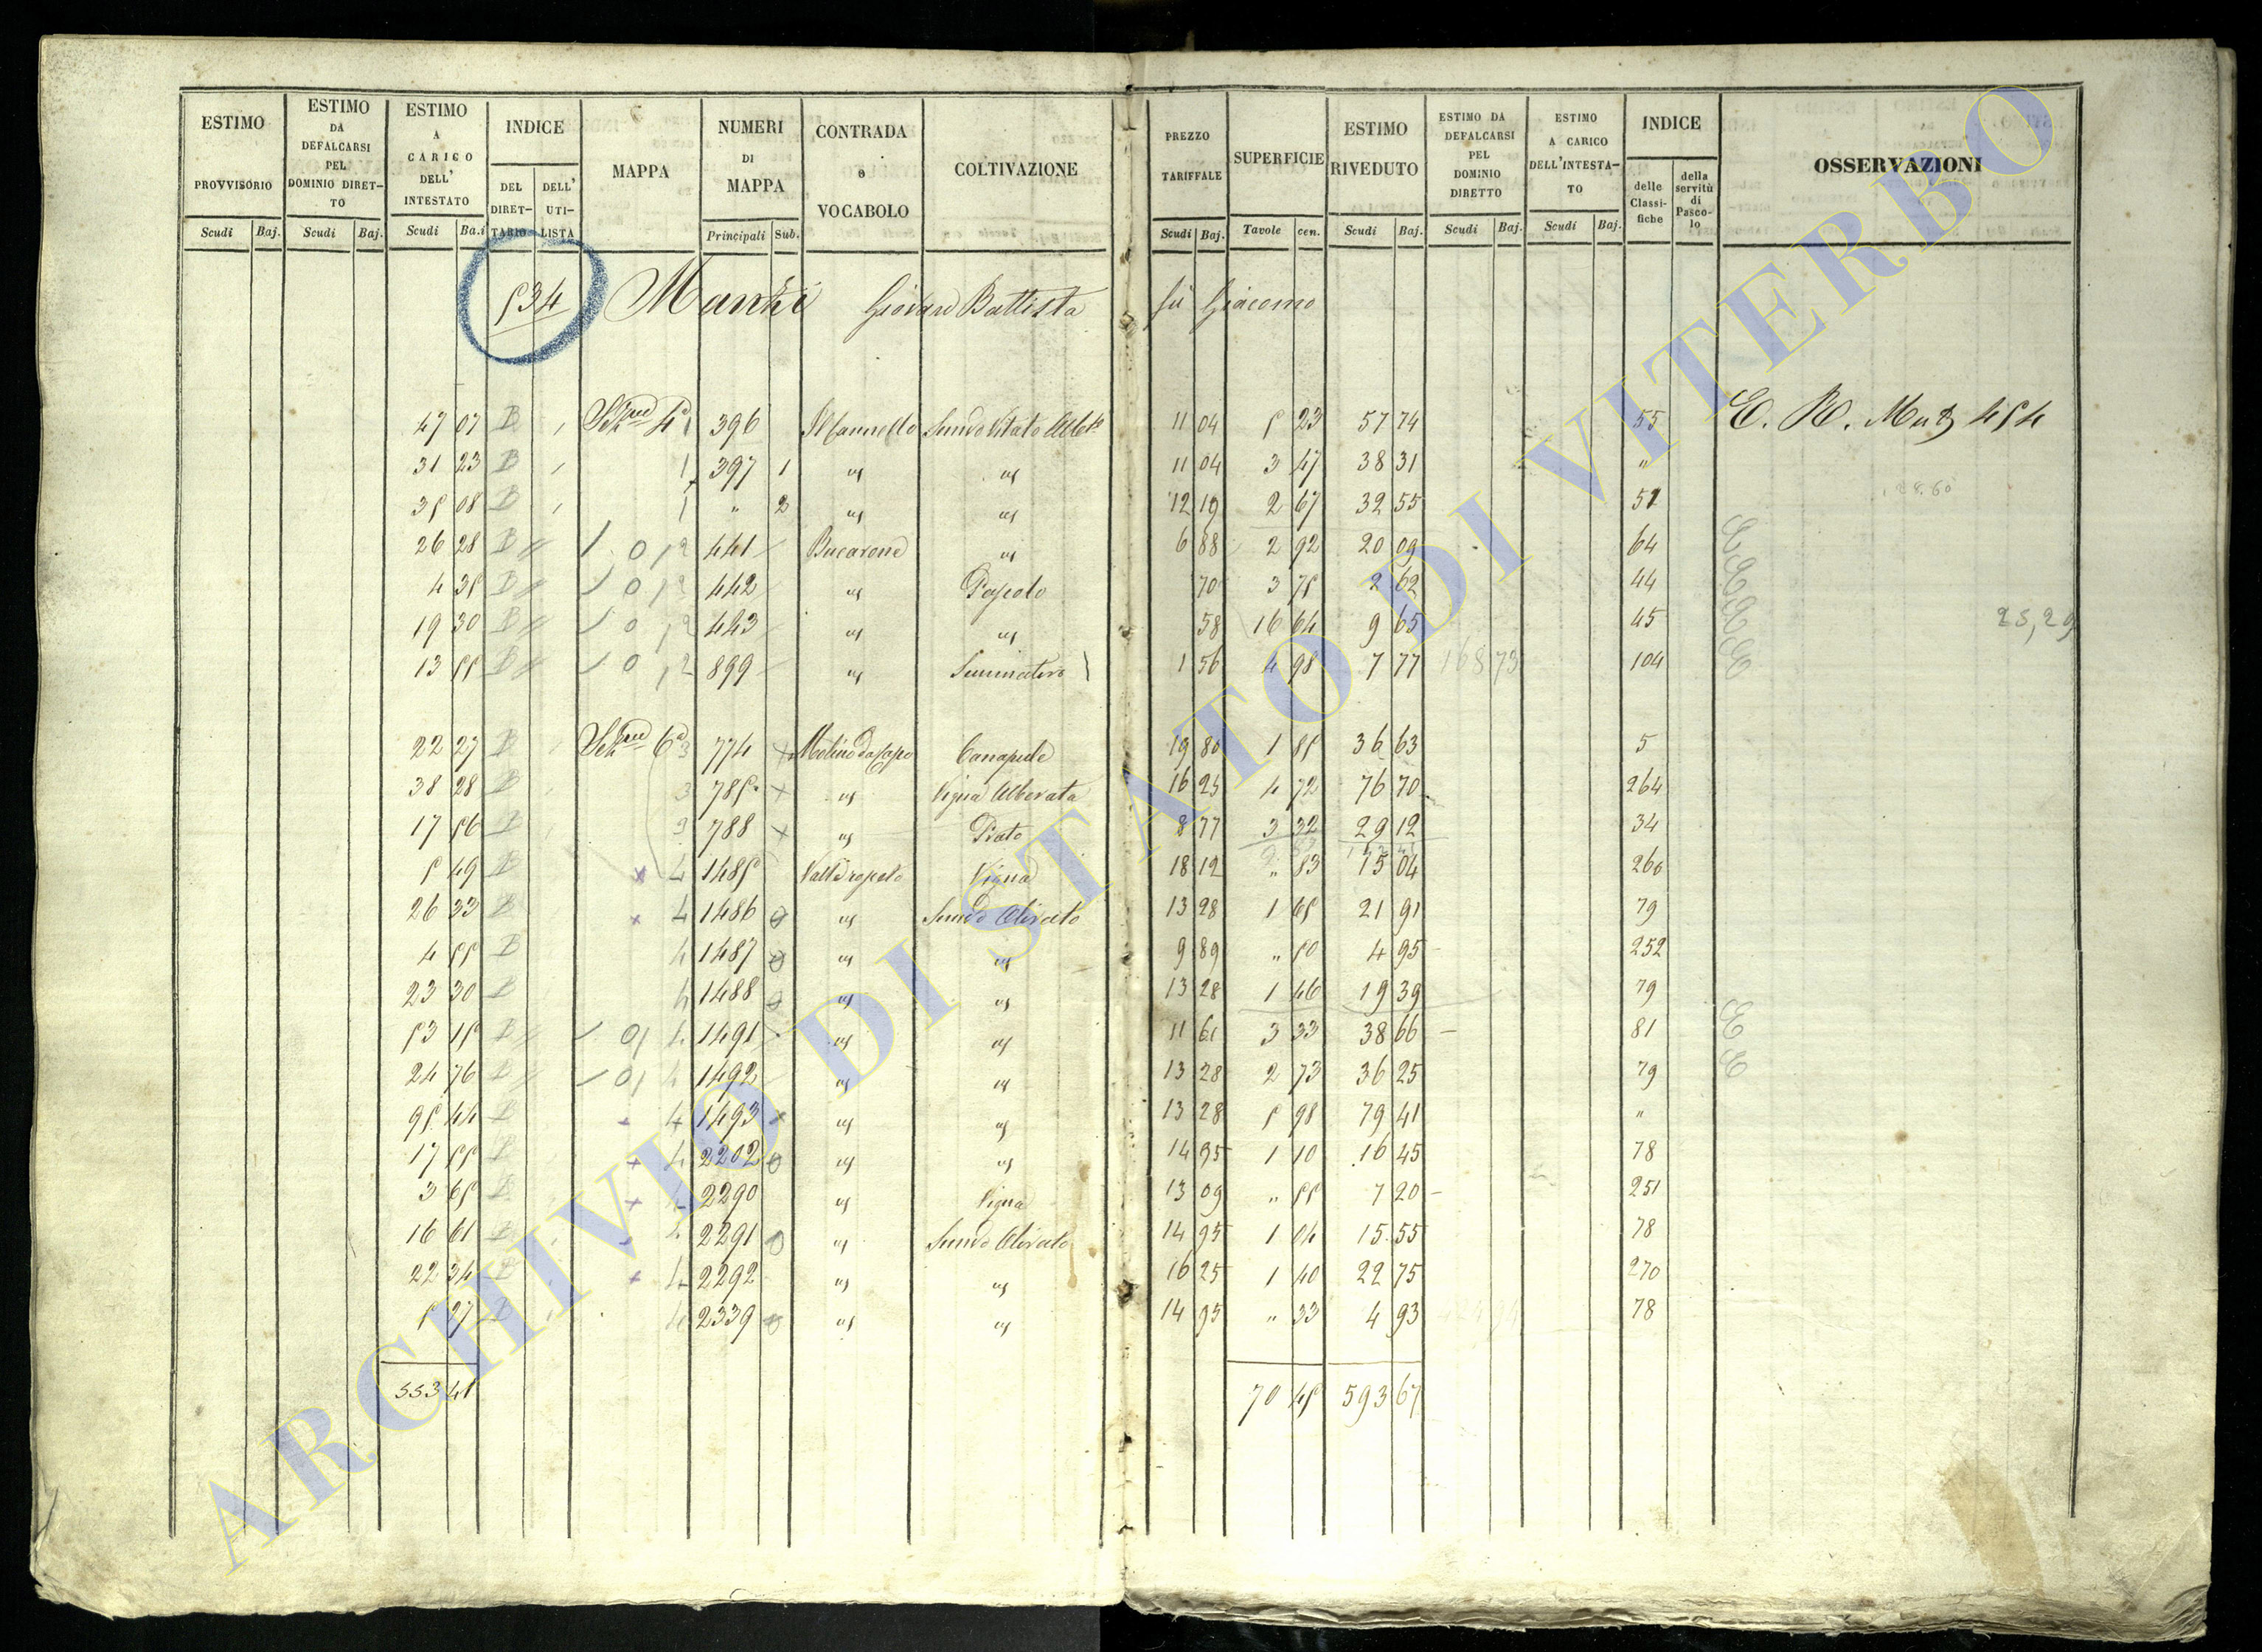 ESTIMO PROVVISORIO | ESTIMO DA DEFALCARSI PEL DOMINIO DIRET-TO | ESTIMO A CARICO DELL' INTESTATO | INDICE DEL DIRET-TARIO | DELL' UTI-LISTA | MAPPA | NUMERI DI MAPPA | CONTRADA o VOCABOLO | COLTIVAZIONE | PREZZO TARIFFALE | SUPERFICIE | ESTIMO RIVEDUTO | ESTIMO DA DEFALCARSI PEL DOMINIO DIRETTO | ESTIMO A CARICO DELL'INTESTA-TO | INDICE delle Classi-fiche | della servitù di Pasco-lo | OSSERVAZIONI
Scudi | Baj. | Scudi | Baj. | Scudi | Ba.i | Principali | Sub. | Scudi | Baj. | Tavole | cen. | Scudi | Baj. | Scudi | Baj. | Scudi | Baj.
534 Giovan Battista fù Giacomo
47 07 B 4a 1 396 11 04 5 23 57 74 55 454
31 23 B 1 397 1 " " 11 04 3 47 38 31 "
35 08 B 1 " 2 " " 12 19 2 67 32 55 51
26 28 B 1 0 12 441 Bucarone " 6 88 2 92 20 09 64
4 35 B 1 0 12 442 " Pascolo 70 3 75 2 62 44
19 30 B 1 0 12 443 " " 58 16 64 9 65 45 25,29
13 55 B 1 0 12 899 " Seminativo 1 56 4 98 7 77 168 73 104
22 27 B 6a 3 774 + Canapule 19 80 1 85 36 63 5
38 28 B 3 785 + " Vigna Alberata 16 25 4 72 76 70 264
17 56 B 3 788 + " Prato 8 77 3 32 29 12 34
5 49 B × 4 1485 Vigna 18 12 " 83 15 04 260
26 33 B × 4 1486 " Olivato 13 28 1 65 21 91 79
4 55 B 4 1487 " " 9 89 " 50 4 95 252
23 30 B 4 1488 " " 13 28 1 46 19 39 79
53 15 B 1491 " " 11 61 3 33 38 66 81
24 76 B 1492 " " 13 28 2 73 36 25 79
95 44 B 4 1493 × " " 13 28 5 98 79 41 "
17 55 B + 4 2202 " " 14 95 1 10 16 45 78
3 65 B + 4 2290 " Vigna 13 09 " 55 7 20 251
16 61 B 4 2291 " Olivato 14 95 1 04 15 55 78
22 34 B + 4 2292 " " 16 25 1 40 22 75 270
5 27 B 4 2339 " " 14 95 " 33 4 93 78
553 41 70 45 593 67
ARCHIVIO DI STATO DI VITERBO